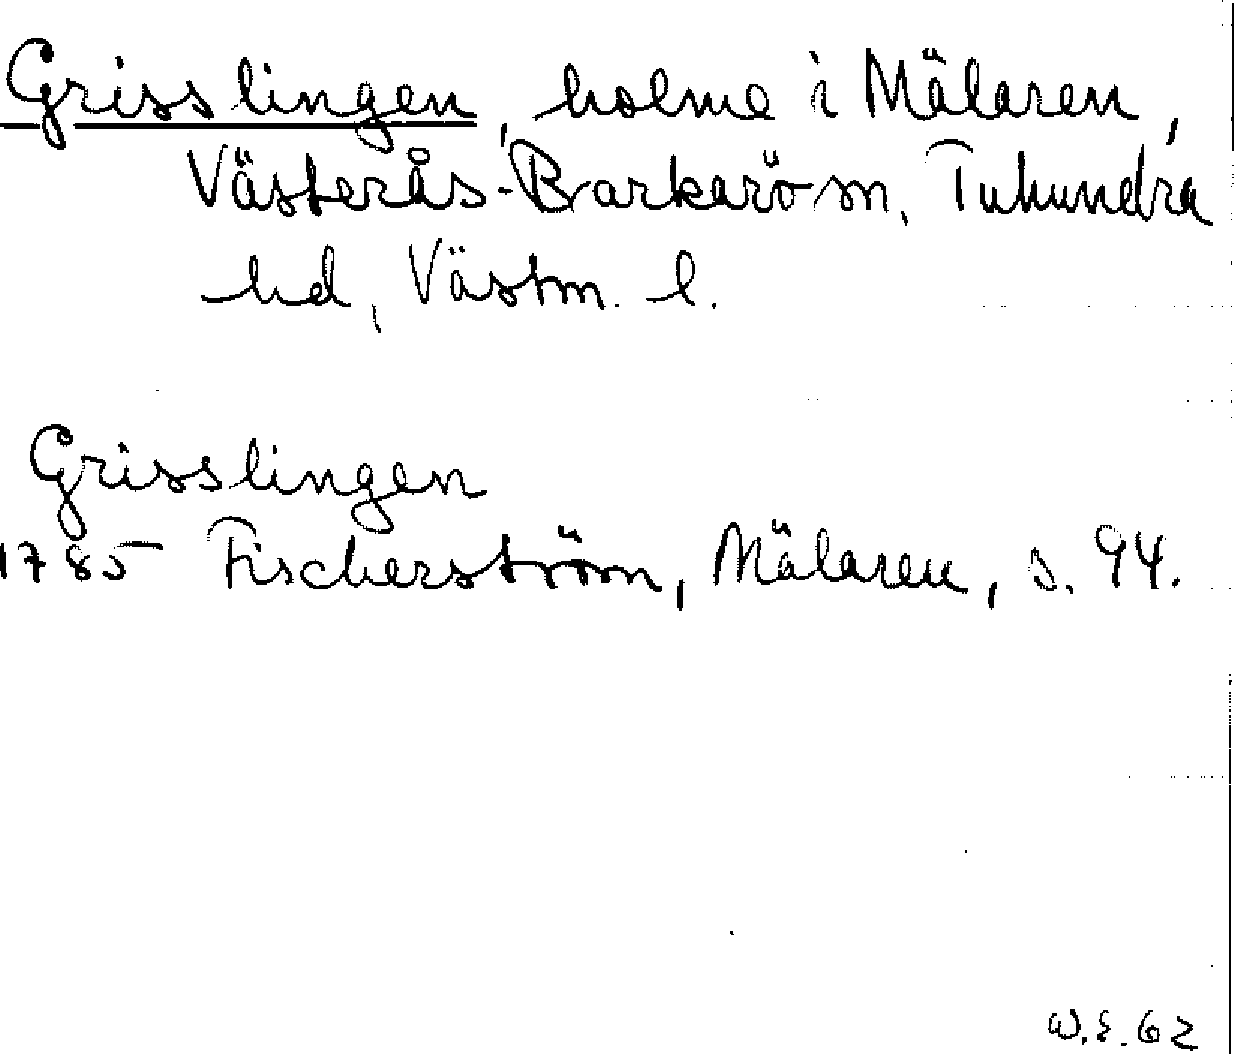 Grisslingen, holme i Mälaren,
Västerås-Barkarö sn, Tuhundra
hd, Västm. l.
Grisslingen
1785 Fischerström, Mälaren, s. 94.
W.E. 62